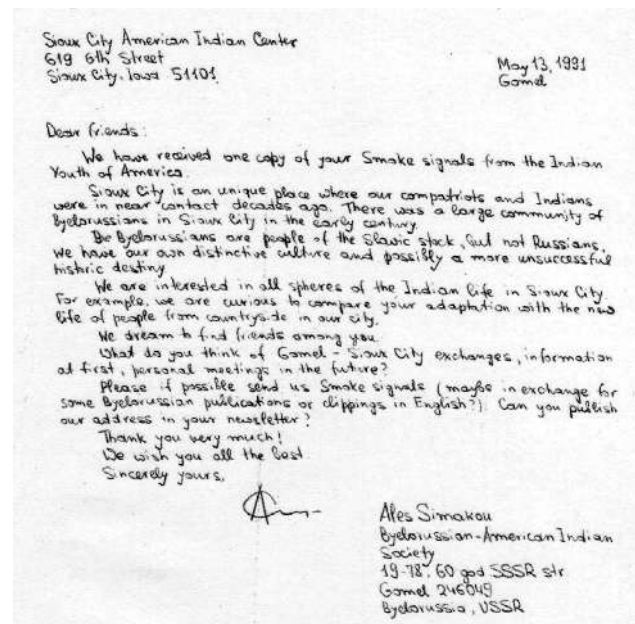 Sioux City American Indian Center
619 6th Street
Sioux City, Iowa 51101
May 13, 1991
Gomel
Dear friends:
We have received one copy of your Smoke signals from the Indian
Youth of America.
Sioux City is an unique place where our compatriots and Indians
were in near contact decades ago. There was a large community of
Byelorussians in Sioux City in the early century.
We Byelorussians are people of the Slavic stock, but not Russians.
We have our own distinctive culture and possibly a more unsuccessful
historic destiny.
We are interested in all spheres of the Indian life in Sioux City.
For example, we are curious to compare your adaptation with the new
life of people from countryside in our city.
We dream to find friends among you.
What do you think of Gomel - Sioux City exchanges, information
at first, personal meetings in the future?
Please if possible send us Smoke signals (maybe in exchange for
some Byelorussian publications or clippings in English?). Can you publish
our address in your newsletter?
Thank you very much!
We wish you all the best.
Sincerely yours,
Ales Simakou
Byelorussian-American Indian
Society
19-78, 60 god SSSR str
Gomel 246049
Byelorussia, USSR